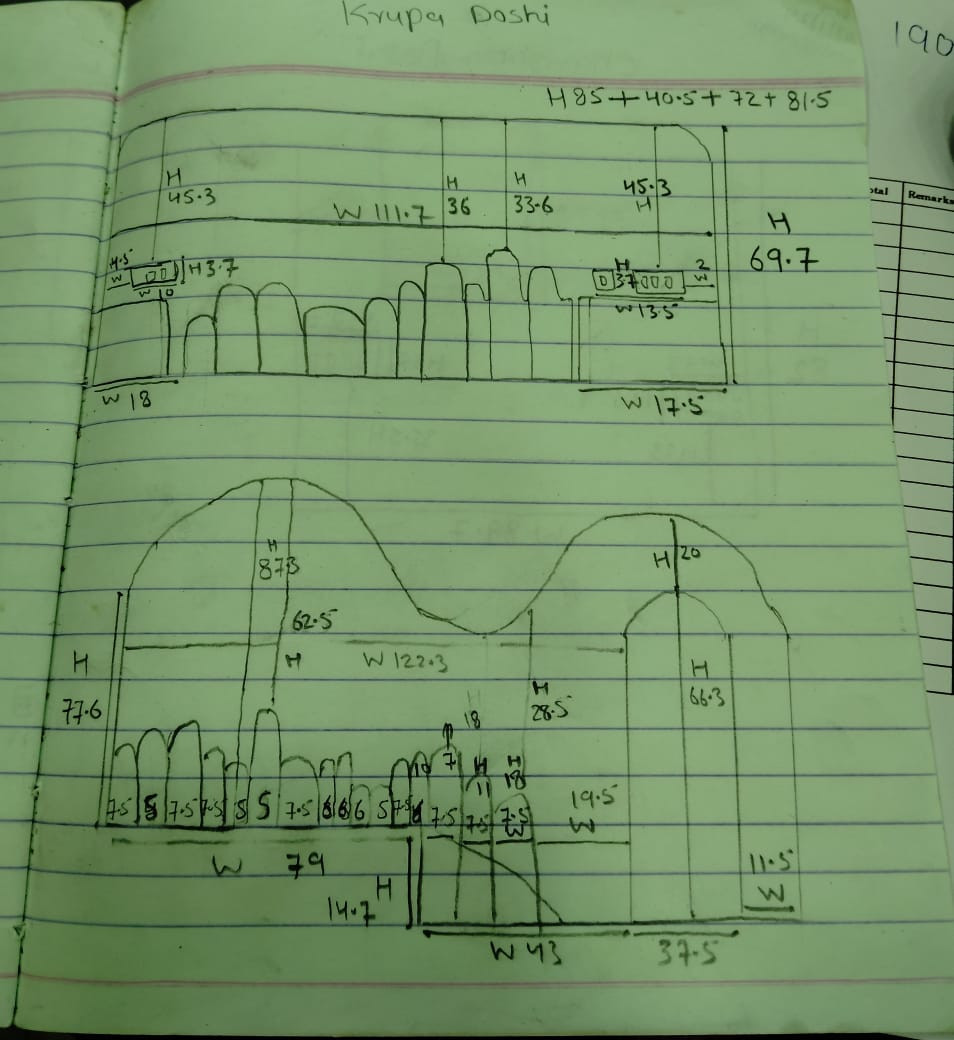 Krupa Doshi
190
H 85 + 40.5 + 72 + 81.5
otal Remarks
H 45.3
W 111.7
H 36
H 33.6
45.3 H
H 69.7
4.5 W
H 3.7
W 10
H 37
2 W
W 13.5
W 18
W 17.5
H 873
H 20
62.5 H
W 122.3
H 77.6
H 66.3
H 28.5
H 18
10 7
H 11
H 18
7.5 8 7.5 7.5 8 5 7.5 6 6 6 5 7.5 7.5 7.5 7.5 W
19.5 W
W 79
H 14.7
11.5 W
W 43
37.5